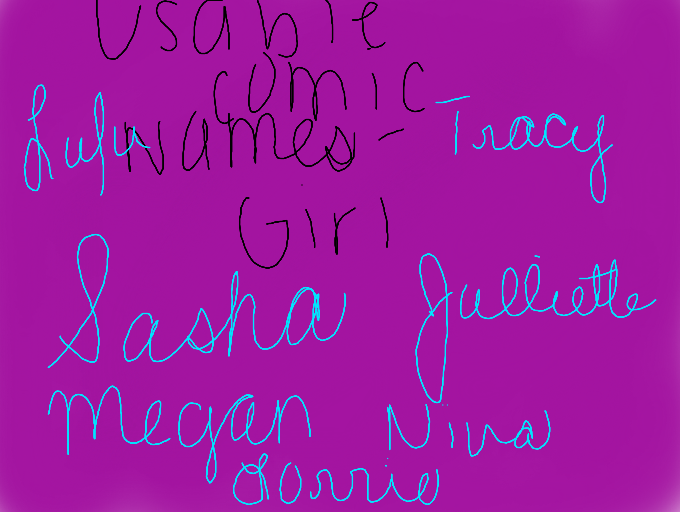 Usable
comic
Names-
Girl
Lulu
Tracy
Sasha
Julliette
Megan
Nina
Lorrie